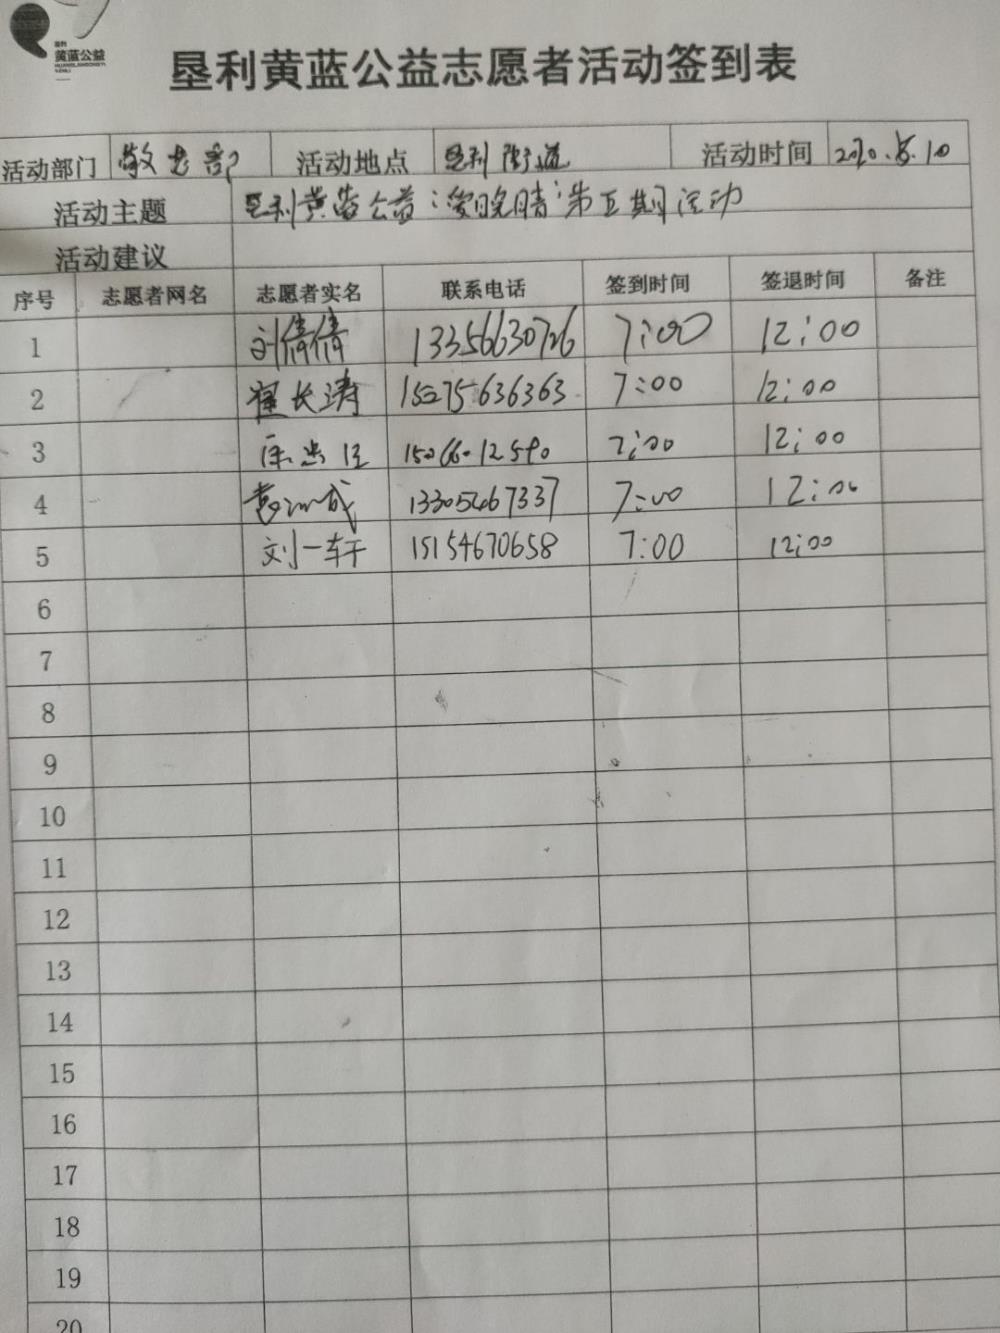 垦利
黄蓝公益
HUANGLANGONGYI
KENLI
垦利黄蓝公益志愿者活动签到表
活动部门 敬老部 活动地点 垦利街道 活动时间 2020.5.10
活动主题 垦利黄蓝公益:"爱晚晴"第五期活动
活动建议
序号 志愿者网名 志愿者实名 联系电话 签到时间 签退时间 备注
1 刘倩倩 13356630726 7:00 12:00
2 崔长涛 15275636363 7:00 12:00
3 7:00 12:00
4 13305467337 7:00 12:00
5 刘一轩 15154670658 7:00 12:00
6
7
8
9
10
11
12
13
14
15
16
17
18
19
20